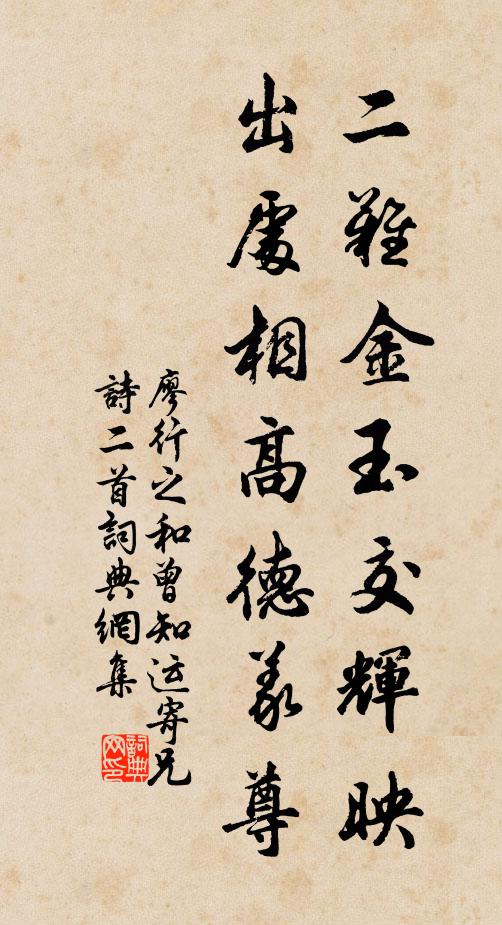 二難金玉交輝映
出處相高德義尊
廖行之和曾知运寄兄
詩二首詞典網集
詞典
网印